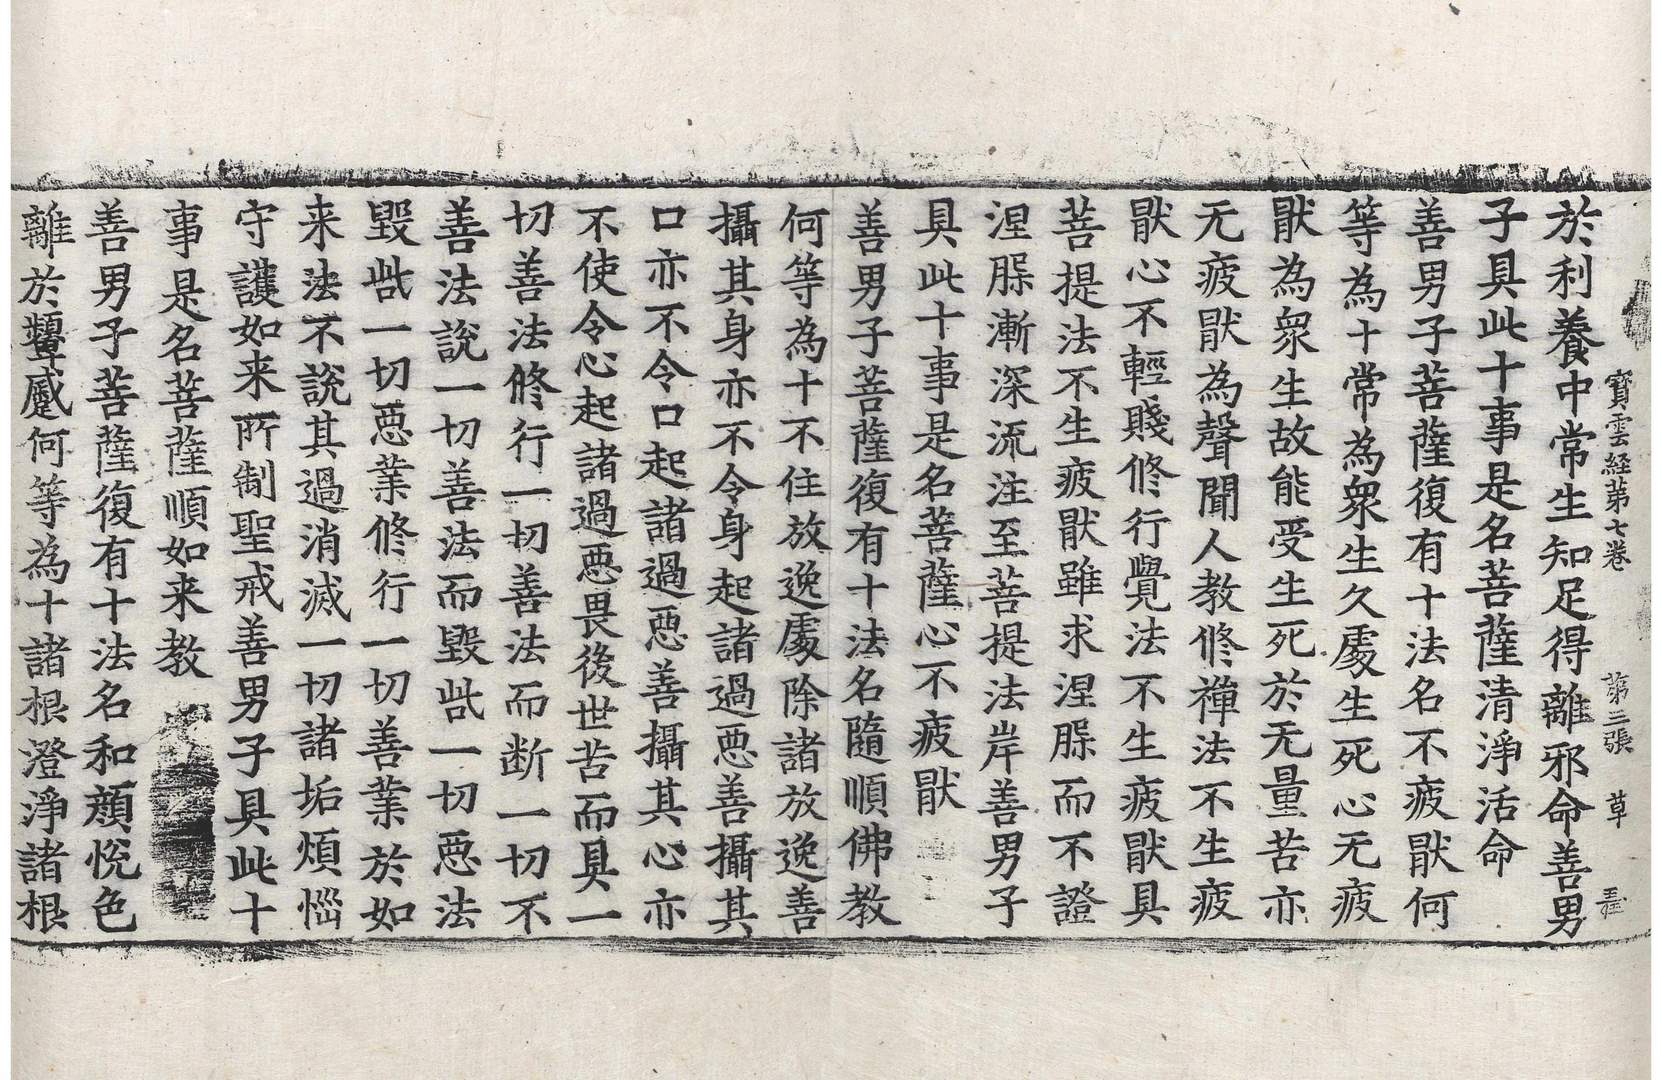 寳雲経苐七卷 苐三張 草
於利養中常生知足得離邪命善男
子具此十事是名菩薩清淨活命
善男子菩薩復有十法名不疲厭何
等為十常為衆生久處生死心无疲
厭為衆生故能受生死於无量苦亦
无疲厭為聲聞人教修禪法不生疲
厭心不輕賤修行覺法不生疲厭具
菩提法不生疲厭雖求涅槃而不證
涅槃漸深流注至菩提法岸善男子
具此十事是名菩薩心不疲厭
善男子菩薩復有十法名隨順佛教
何等為十不住放逸處除諸放逸善
攝其身亦不令身起諸過惡善攝其
口亦不令口起諸過惡善攝其心亦
不使令心起諸過惡畏後世苦而具一
切善法修行一切善法而断一切不
善法說一切善法而毀呰一切惡法
毀呰一切惡業修行一切善業於如
来法不說其過消滅一切諸垢煩惱
守護如来所制聖戒善男子具此十
事是名菩薩順如来教
善男子菩薩復有十法名和顏悅色
離於顰蹙何等為十諸根澄淨諸根